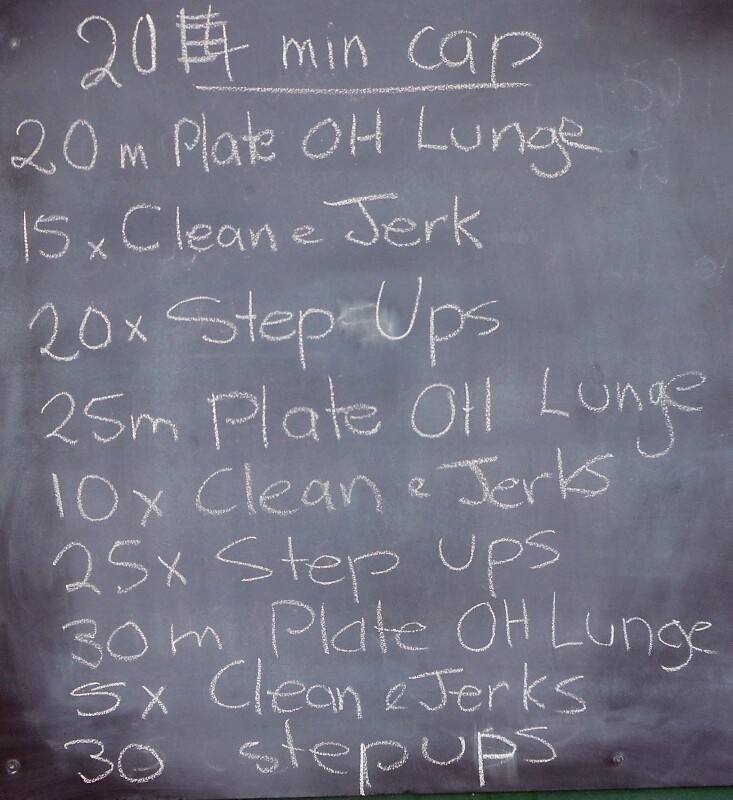 20 min cap
20 m Plate OH Lunge
15 x Clean e Jerk
20 x Step Ups
25m Plate OH Lunge
10 x Clean e Jerks
25 x Step ups
30 m Plate OH Lunge
5 x Clean e Jerks
30 step ups